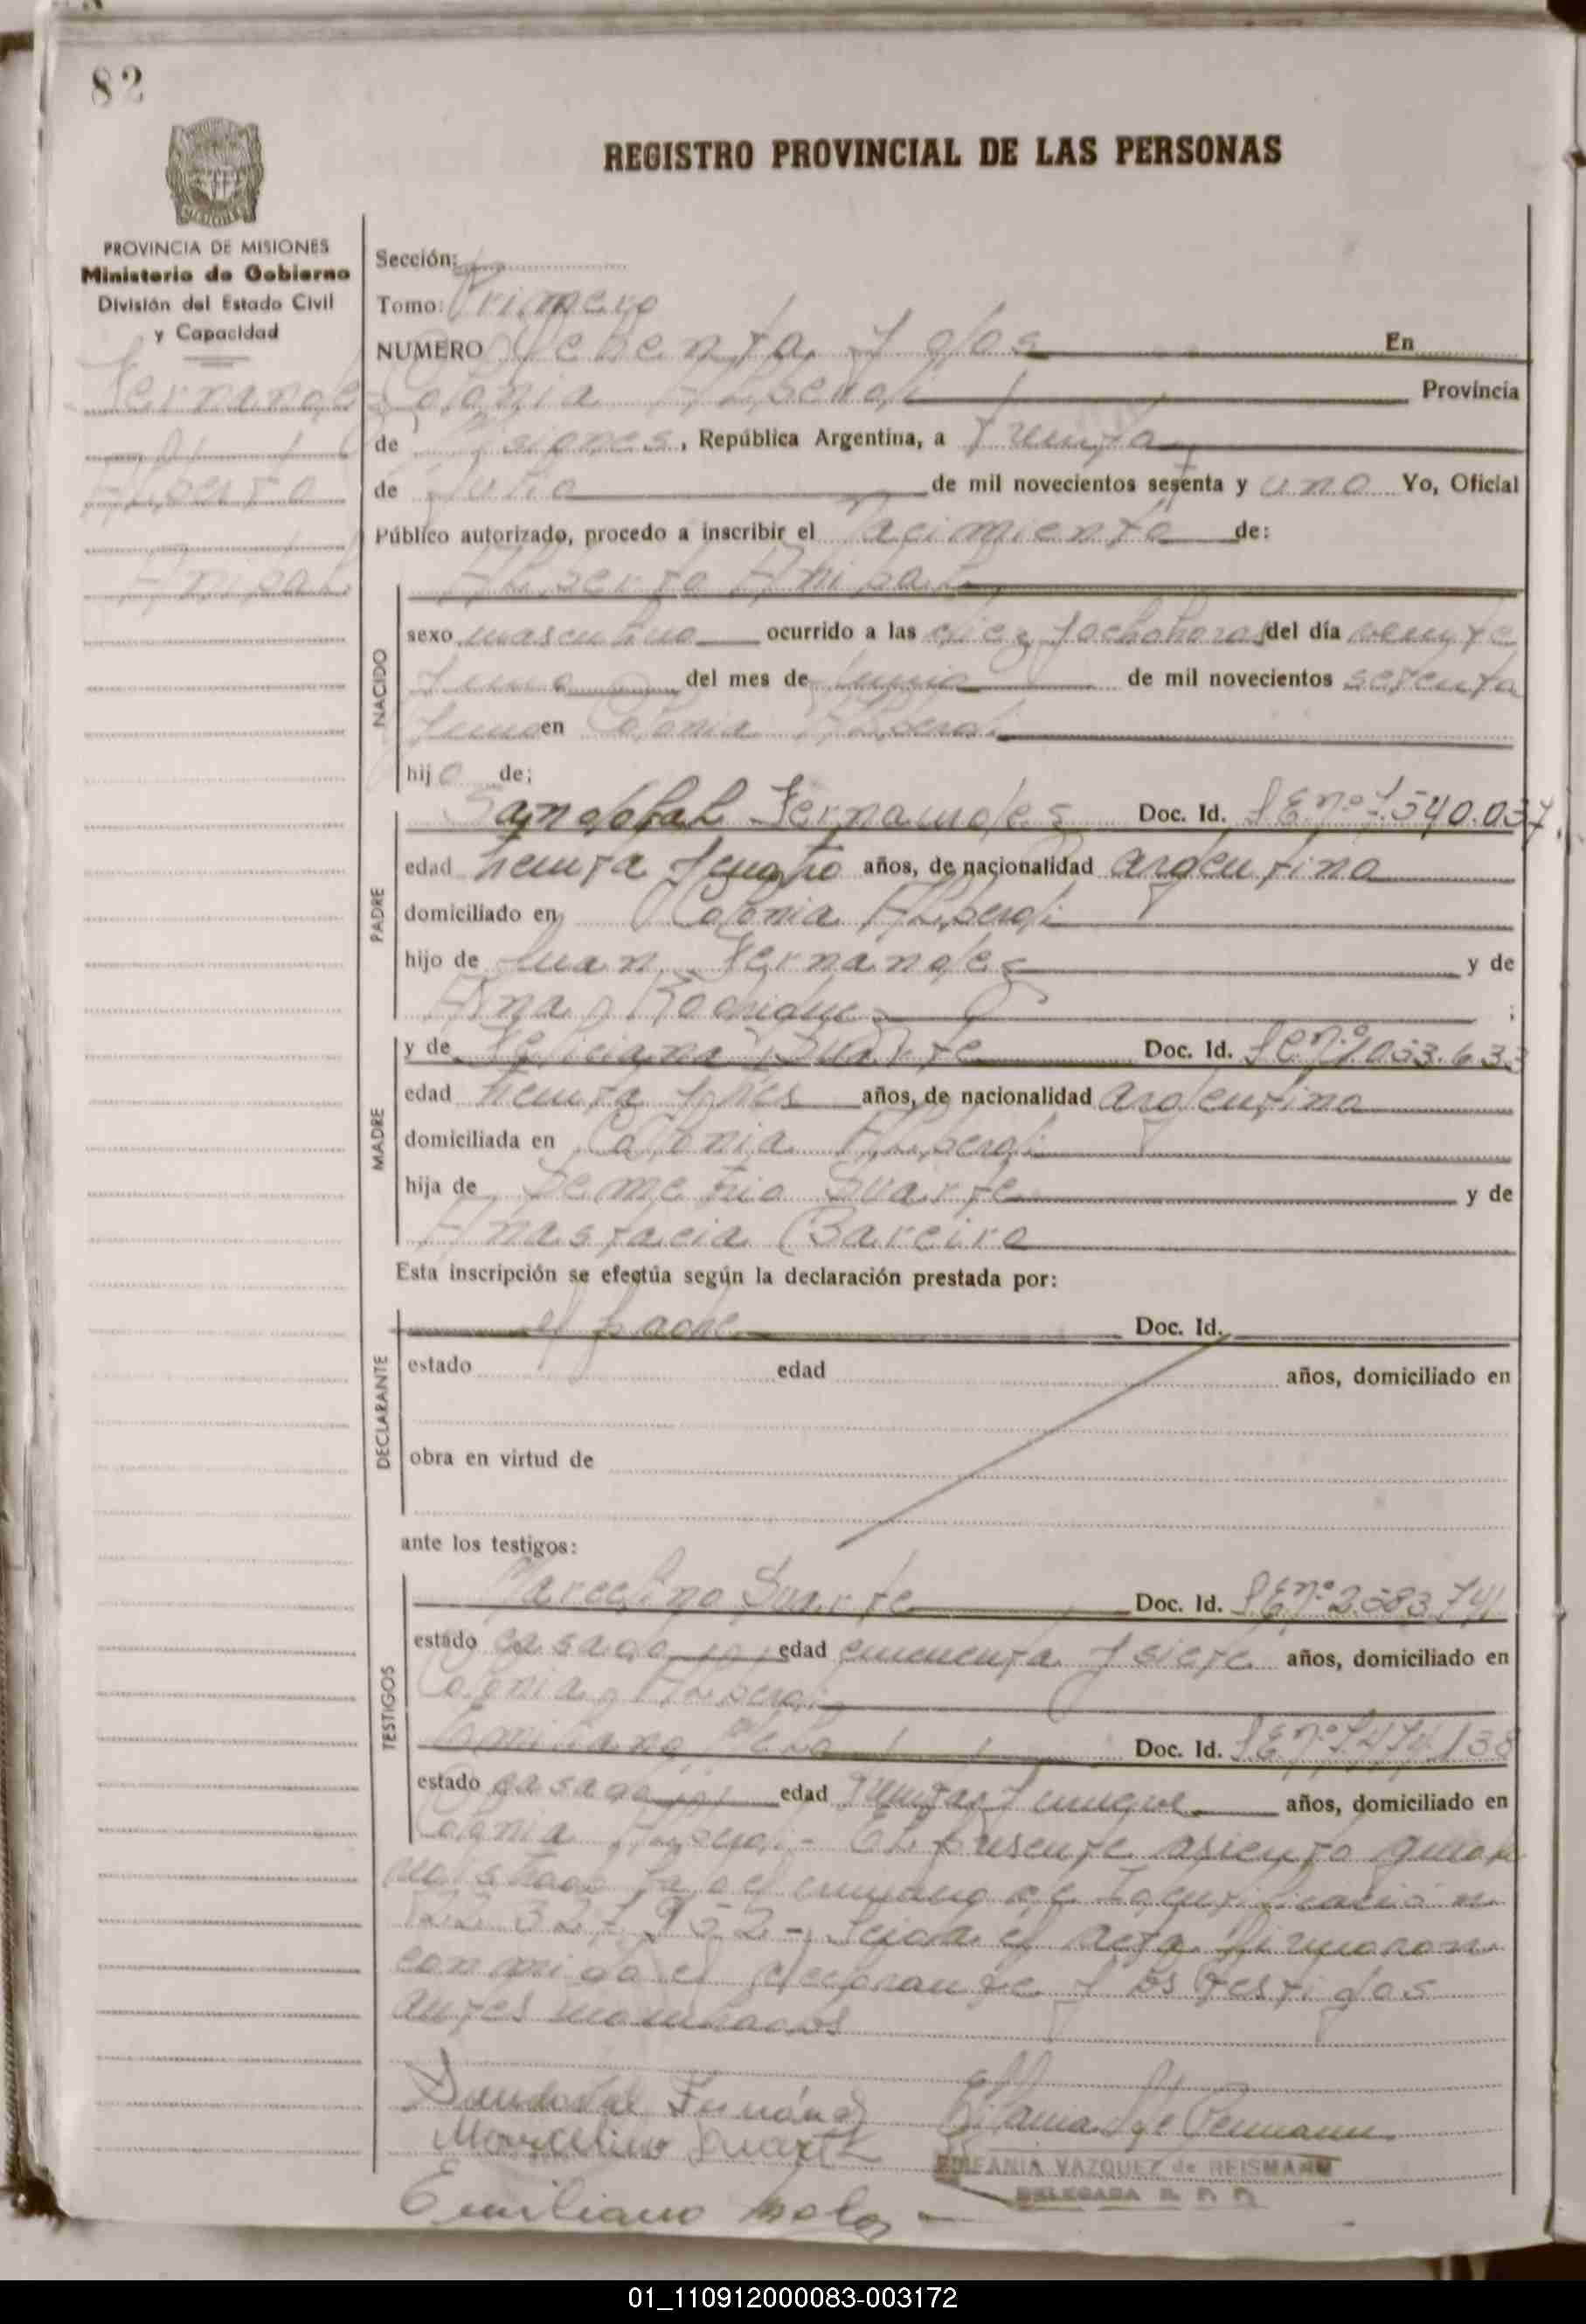 82
REGISTRO PROVINCIAL DE LAS PERSONAS
PROVINCIA DE MISIONES
Ministerio de Gobierno
División del Estado Civil
y Capacidad
Fernandez
Alberto
Anibal
Sección:
Tomo: Primero
NUMERO Ochenta y dos En
Colonia Alberdi Provincia
de Misiones, República Argentina, a Treinta
de Julio de mil novecientos setenta y uno Yo, Oficial
Público autorizado, procedo a inscribir el Nacimiento de:
Alberto Anibal
NACIDO
sexo masculino ocurrido a las diez y ocho horas del día veinte
y uno del mes de Junio de mil novecientos setenta
y uno en Colonia Alberdi
hijo de:
PADRE
Sandobal Fernandes Doc. Id. L E nº 7.540.037.
edad treinta y cuatro años, de nacionalidad argentina
domiciliado en Colonia Alberdi
hijo de Juan Fernandes y de
Ana Rodrigues ;
MADRE
y de Feliciana Duarte Doc. Id. L C nº 1.033.633
edad treinta y tres años, de nacionalidad argentina
domiciliada en Colonia Alberdi
hija de Demetrio Duarte y de
Anastacia Bareiro
Esta inscripción se efectúa según la declaración prestada por:
DECLARANTE
el padre Doc. Id.
estado edad años, domiciliado en
obra en virtud de
ante los testigos:
TESTIGOS
Marcelino Duarte Doc. Id. L E nº 2.583.741
estado casado edad cincuenta y siete años, domiciliado en
Colonia Alberdi
Emiliano Doc. Id. L E nº 7.474.138
estado casado edad treinta y nueve años, domiciliado en
Colonia Alberdi - El presente asiento queda
de Identificación
22.327.952 - Leida el acta firmaron
conmigo el declarante y los testigos
antes nombrados
Sandobal Fernández
Marcelino Duarte
Emiliano
EPIFANIA VAZQUEZ de REISMANN
DELEGADA R. P. P.
01_110912000083-003172